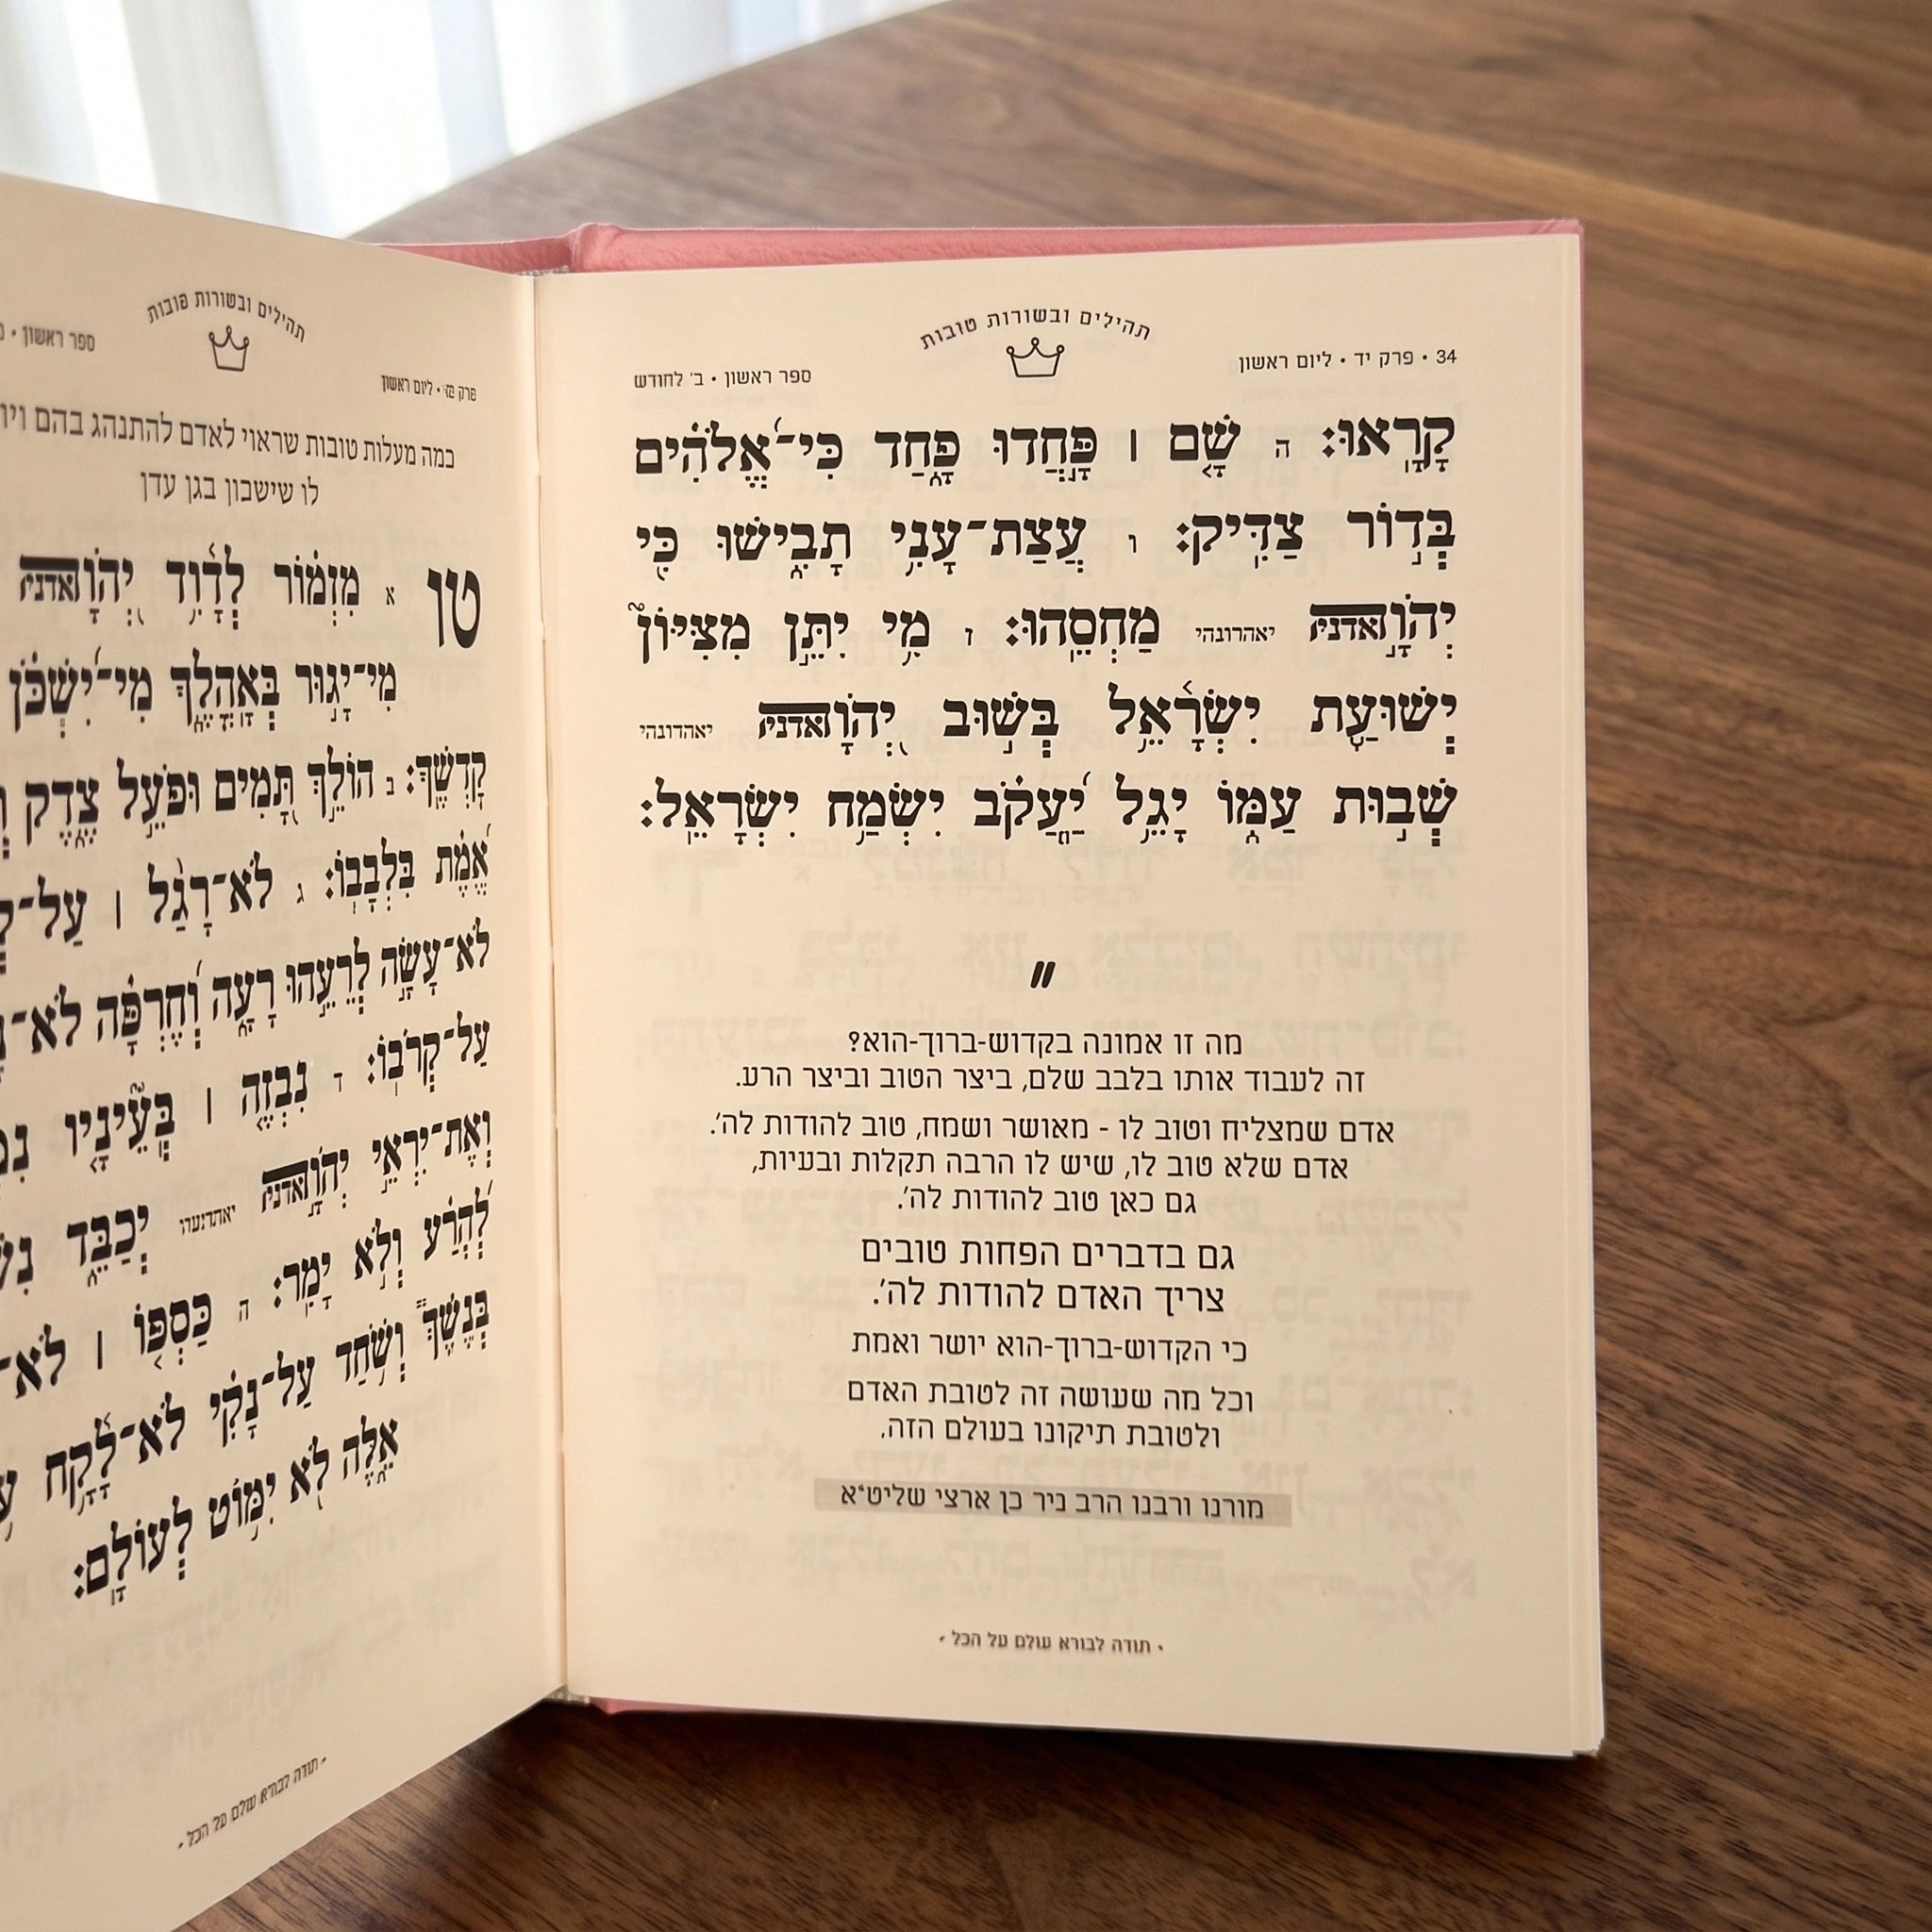 34 • פרק יד • ליום ראשון
תהילים ובשורות טובות
ספר ראשון • ב׳ לחודש
קָרָֽאוּ׃ ה שָׁ֤ם ׀ פָּ֣חֲדוּ פָ֑חַד כִּֽי־אֱ֝לֹהִ֗ים
בְּד֣וֹר צַדִּֽיק׃ ו עֲצַת־עָנִ֥י תָבִ֑ישׁוּ כִּ֖י
יְהֹוָ֣ה אדני יאהדונהי מַחְסֵֽהוּ׃ ז מִ֥י יִתֵּ֣ן מִצִּיּוֹן֮
יְשׁוּעַ֪ת יִשְׂרָ֫אֵ֥ל בְּשׁ֣וּב יְ֭הֹוָה אדני יאהדונהי
שְׁב֣וּת עַמּ֑וֹ יָגֵ֥ל יַ֝עֲקֹ֗ב יִשְׂמַ֥ח יִשְׂרָאֵֽל׃
"
מה זו אמונה בקדוש-ברוך-הוא?
זה לעבוד אותו בלבב שלם, ביצר הטוב וביצר הרע.
אדם שמצליח וטוב לו - מאושר ושמח, טוב להודות לה׳.
אדם שלא טוב לו, שיש לו הרבה תקלות ובעיות,
גם כאן טוב להודות לה׳.
גם בדברים הפחות טובים
צריך האדם להודות לה׳.
כי הקדוש-ברוך-הוא יושר ואמת
וכל מה שעושה זה לטובת האדם
ולטובת תיקונו בעולם הזה.
מורנו ורבנו הרב ניר כן ארצי שליט״א
• תודה לבורא עולם על הכל •
פרק טו • ליום ראשון
תהילים ובשורות טובות
ספר ראשון •
כמה מעלות טובות שראוי לאדם להתנהג בהם
לו שישכון בגן עדן
טו א מִזְמ֗וֹר לְדָ֫וִ֥ד יְ֭הֹוָה אדני
מִי־יָג֣וּר בְּאׇהֳלֶ֑ךָ מִֽי־יִ֝שְׁכֹּ֗ן
קׇדְשֶֽׁךָ׃ ב הוֹלֵ֣ךְ תָּ֭מִים וּפֹעֵ֥ל צֶ֑דֶק
אֱ֝מֶ֗ת בִּלְבָבֽוֹ׃ ג לֹֽא־רָגַ֨ל ׀ עַל־
לֹא־עָשָׂ֣ה לְרֵעֵ֣הוּ רָעָ֑ה וְ֝חֶרְפָּ֗ה לֹא־
עַל־קְרֹבֽוֹ׃ ד נִבְזֶ֤ה ׀ בְּֽעֵ֘ינָ֤יו
וְאֶת־יִרְאֵ֣י יְהֹוָ֣ה אדני יְכַבֵּ֑ד
לְ֝הָרַ֗ע וְלֹ֣א יָמִֽר׃ ה כַּסְפּ֤וֹ ׀ לֹא־
בְּנֶשֶׁךְ֮ וְשֹׁ֥חַד עַל־נָקִ֗י לֹא־לָ֫קָ֥ח
אֵ֑לֶּה לֹ֖א יִמּ֣וֹט לְעוֹלָֽם׃
• תודה לבורא עולם על הכל •